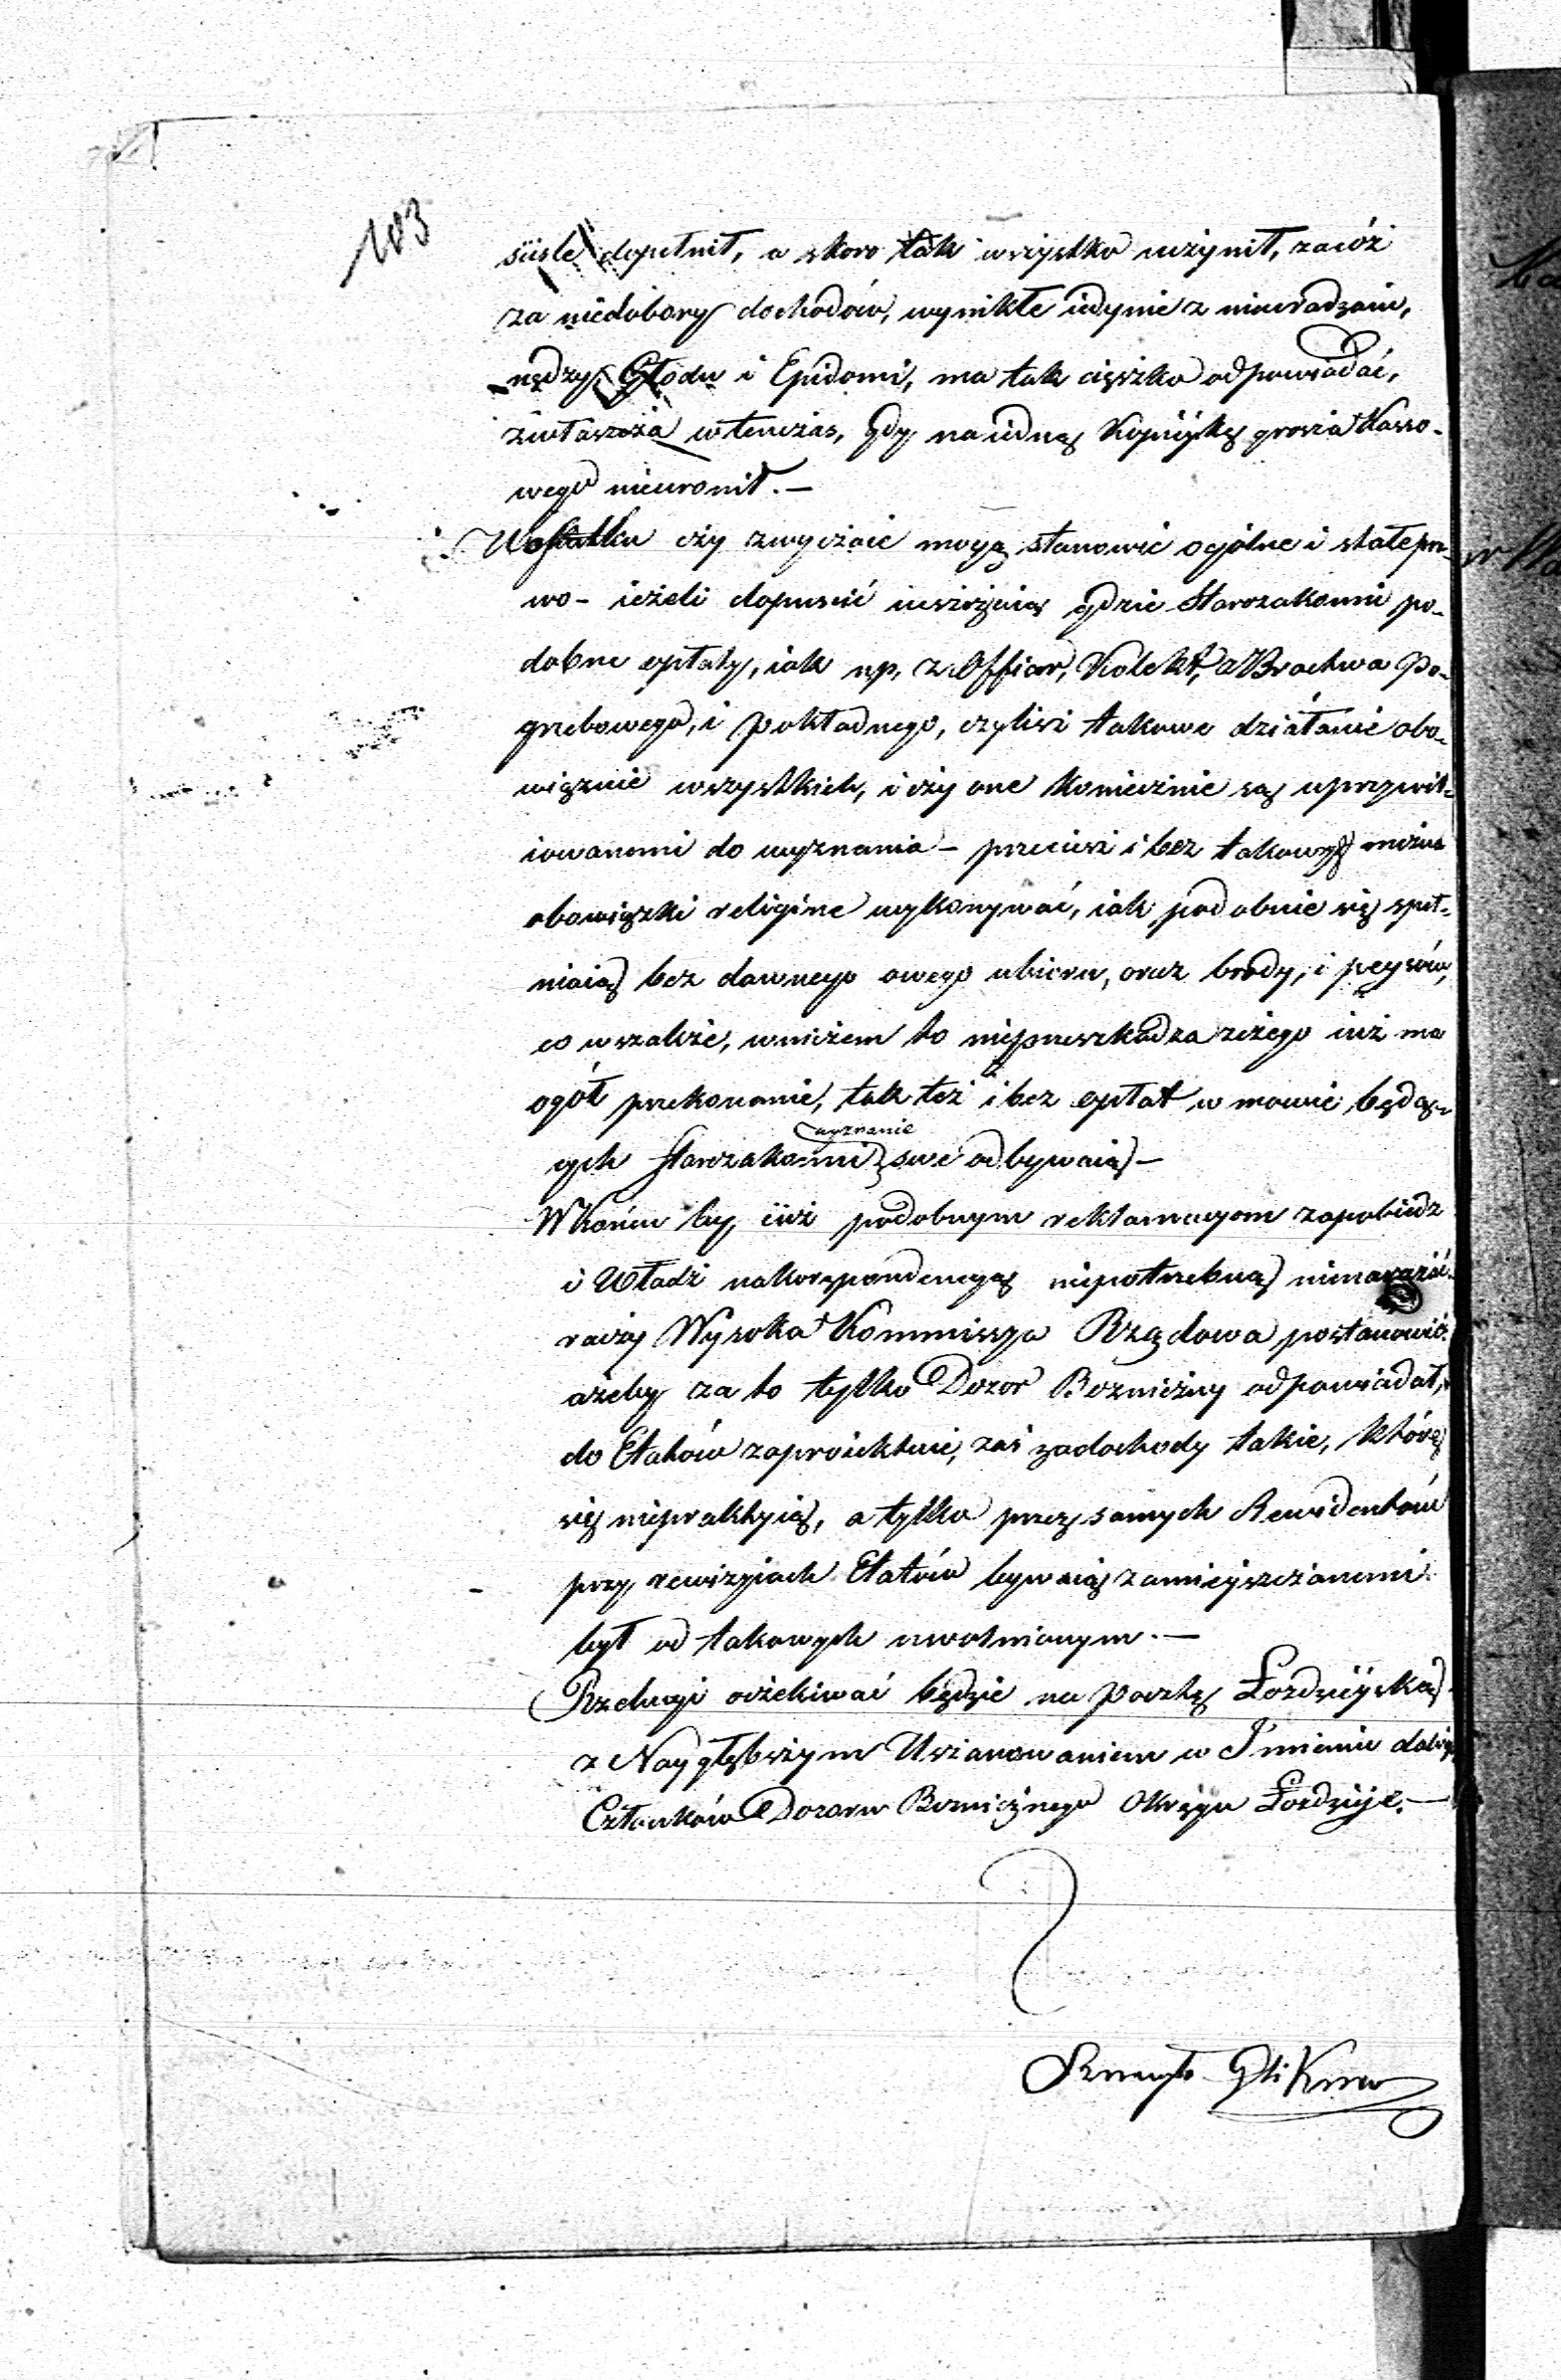 103
sciśle dopełnił, a skoro tak wszystko uczynił, zacóż
za niedobory dochodów, wynikłe iedynie z nieuradzaiu,
nędzy, Głodu i Epidemi, ma tak cięszko odpowiadać,
zwłaszcza wtenczas, gdy na iedną Kopiéykę grosza Kasso-
wego nieuronił. —
Wostatku czy zwyczaie mogą stanowić ogólne i stałe pra-
wo – ieżeli dopuścić gdzie Starozakonni po-
dobne opłaty, iak np. z Offiar, Kolekt, z Bractwa Po-
grzebowego, i pokładnego, czyliż takowe działanie obo-
wiązuie wszystkich, i czy one koniecznie są uprzywil-
iowanemi do wyznania – przecież i bez takowych można
obowiązki religijne wykonywać, iak podobnie się speł-
niaią bez dawnego owego ubioru, oraz brody, i peysów,
co wszakże, wniczem to nieprzeszkadza zczego iuż ma
ogół przekonanie, tak też i bez opłat w mowie będą-
cych Starozakonni wyznanie swe odbywaią —
W końcu by iuż podobnym reklamacyom zapobiedz
i Władz nakorespondencyą niepotrzebną nienarażać
raczy Wysoka Kommissya Rządowa postanowić
ażeby za to tylko Dozor Boźniczny odpowiadał,
do Etatów zaproiektuie, zaś za dochody takie, które
się niepraktyią, a tylko przez samych Rewidentów
przy rewizyiach Etatów bywaią zamieyszczanemi
był od takowych uwolnionym. —
Rzeługi oczekiwać będzie na pocztę Łozdzieyską
z Naygłębszym Uszanowaniem w Imieniu dalszych
Członków Dozoru Boźnicznego Okręgu Łozdzieje. —